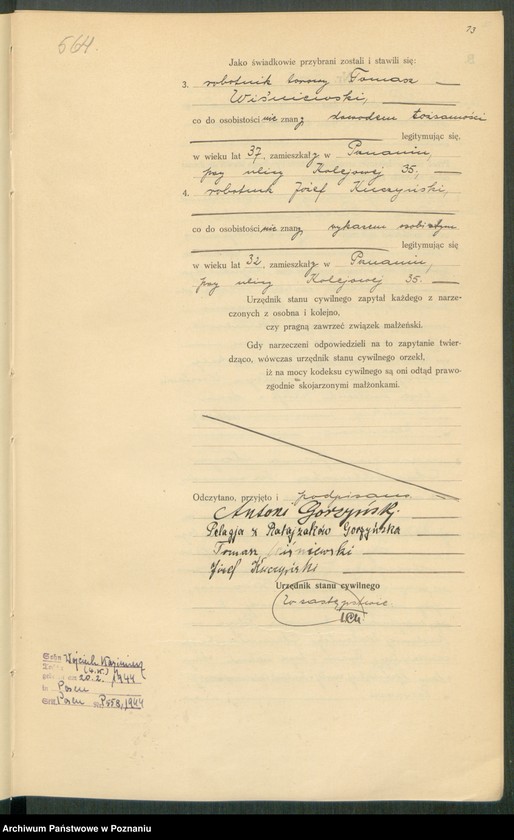 73
564.
Jako świadkowie przybrani zostali i stawili się:
3. robotnik Tomasz
Wiśniewski,
co do osobistości nie znany dowodem tożsamości
legitymując się,
w wieku lat 37, zamieszkały w Poznaniu,
przy ulicy Kolejowej 35,
4. robotnik Józef Kuczyński,
co do osobistości nie znany, wykazem osobistym
legitymując się
w wieku lat 32, zamieszkały w Poznaniu,
przy ulicy Kolejowej 35.
Urzędnik stanu cywilnego zapytał każdego z narze-
czonych z osobna i kolejno,
czy pragną zawrzeć związek małżeński.
Gdy narzeczeni odpowiedzieli na to zapytanie twier-
dząco, wówczas urzędnik stanu cywilnego orzekł,
iż na mocy kodeksu cywilnego są oni odtąd prawo-
zgodnie skojarzonymi małżonkami.
Odczytano, przyjęto i podpisano
Antoni Gorzyński.
Pelagja z Ratajzaków Gorzyńska
Tomasz Wiśniewski
Józef Kuczyński
Urzędnik stanu cywilnego
W zastępstwie.
Sohn Wojciech Kazimierz
20.2.1944
in Posen
StA Posen 1944
Archiwum Państwowe w Poznaniu